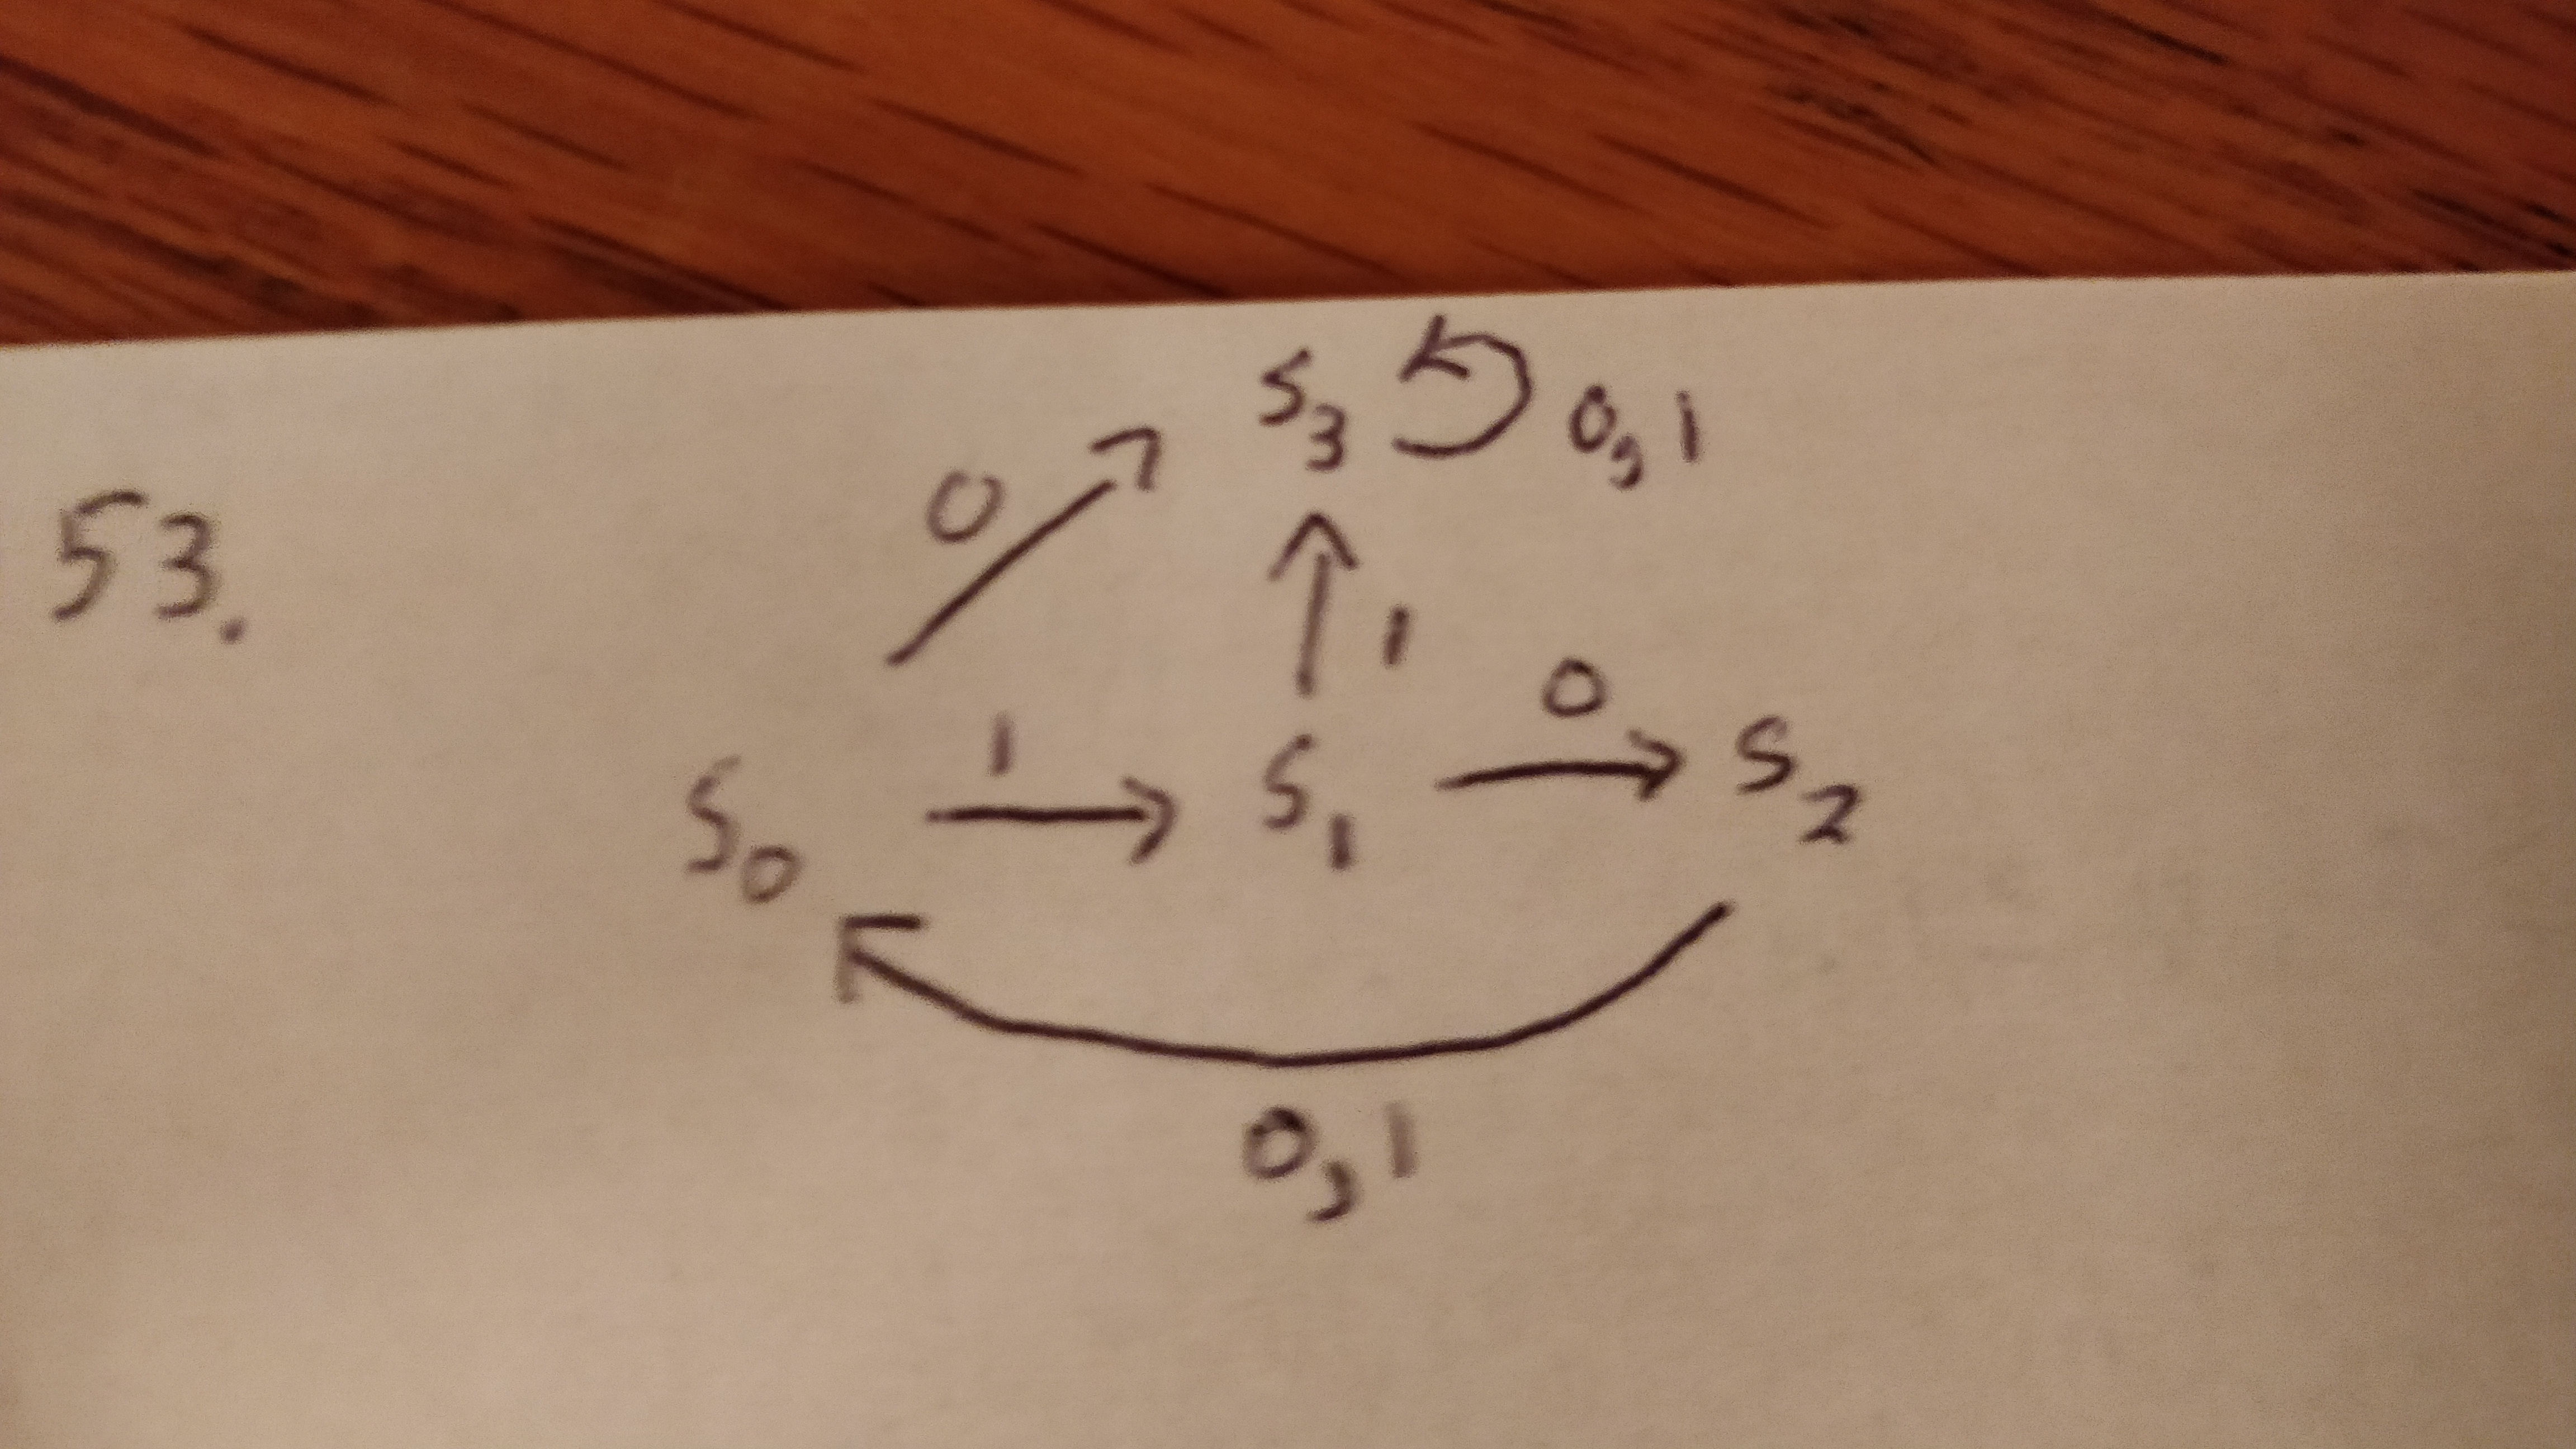 53.
S₃ 0,1
0
1
0
1
S₀ S₁ S₂
0,1